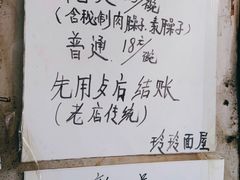 碗
(含秘制肉臊子,素臊子)
普通 18元/碗
先用歺后结账
(老店传统)
玲玲面屋